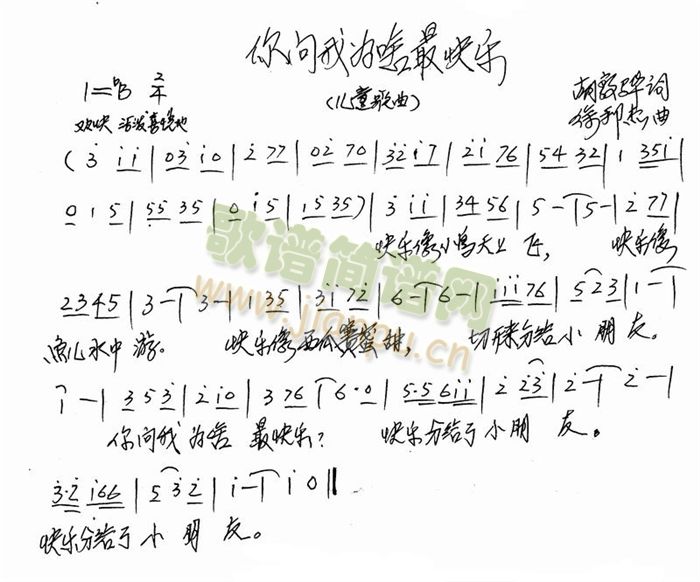 你问我为啥最快乐
(儿童歌曲)
1=♭B 2/4
词
曲
欢快 活泼喜悦地
(3 i i | 0 3 i 0 | 2 7 7 | 0 2 7 0 | 3 2 i 7 | 2 i 7 6 | 5 4 3 2 | 1 3 5 i |
0 1 5 | 5 5 3 5 | 0 i 5 | 1 5 3 5) | 3 i i | 3 4 5 6 | 5 - | 5 - | 2 7 7 |
快乐像小鸟天上飞, 快乐像
2 3 4 5 | 3 - | 3 - | 1 3 5 | 3 i 7 2 | 6 - | 6 - | i i i 7 6 | 5 2 3 | 1 - |
鱼儿水中游。 快乐像西瓜赛蜜甜, 切开来分给小朋友。
1 - | 3 5 3 | 2 i 0 | 3 7 6 | 6 · 0 | 5·5 6 i i | 2 2 3 | 2 - | 2 - |
你问我为啥最快乐? 快乐分给了小朋友。
3·2 i 6 6 | 5 3 2 | i - | i 0 ‖
快乐分给了小朋友。
歌谱简谱网
www.jianpu.cn